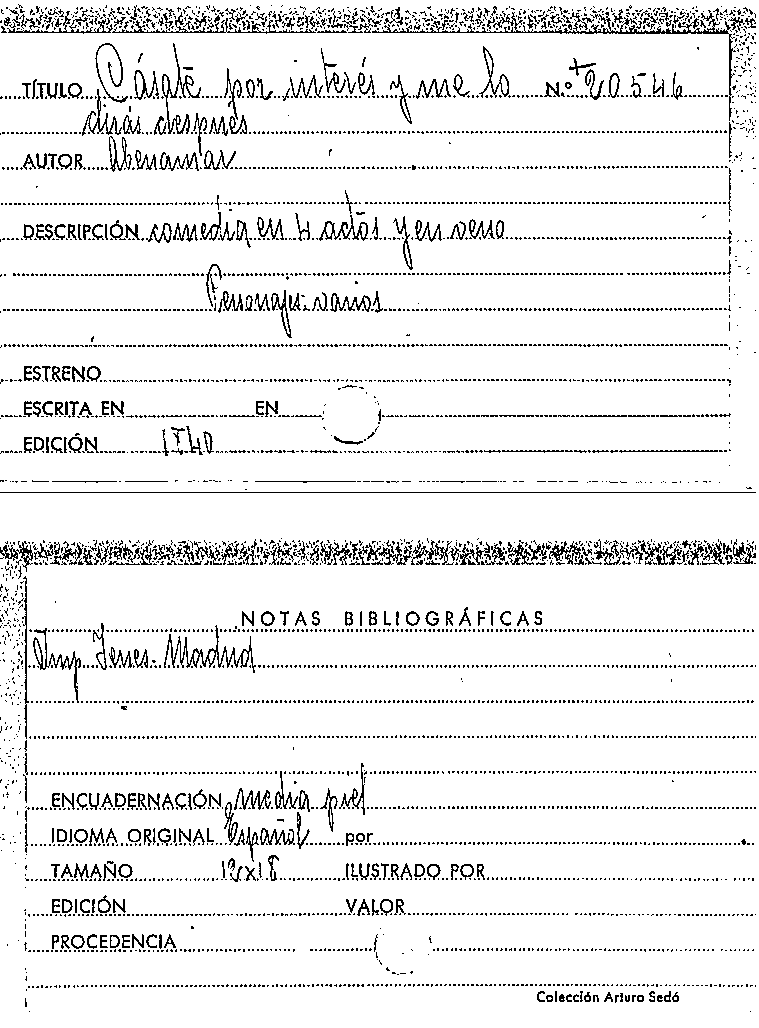 TÍTULO Cásate por interés y me lo N.º + 20546
dirás después
AUTOR Abenamar
DESCRIPCIÓN comedia en 4 actos y en verso
Personajes: varios
ESTRENO
ESCRITA EN EN
EDICIÓN
NOTAS BIBLIOGRÁFICAS
Imp Yenes. Madrid
ENCUADERNACIÓN media piel
IDIOMA ORIGINAL Español por
TAMAÑO 12x18 ILUSTRADO POR
EDICIÓN VALOR
PROCEDENCIA
Colección Arturo Sedó